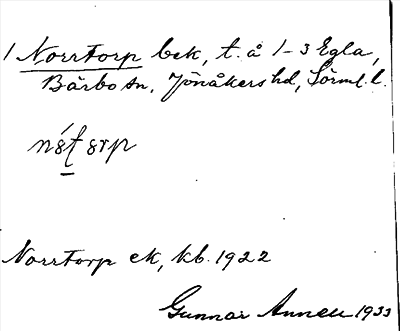 1 Norrtorp bek, t. å 1-3 Egla,
Bärbo sn, Jönåkers hd, Sörml. l.
Norrtorp ek, kb. 1922
Gunnar Annell 1933